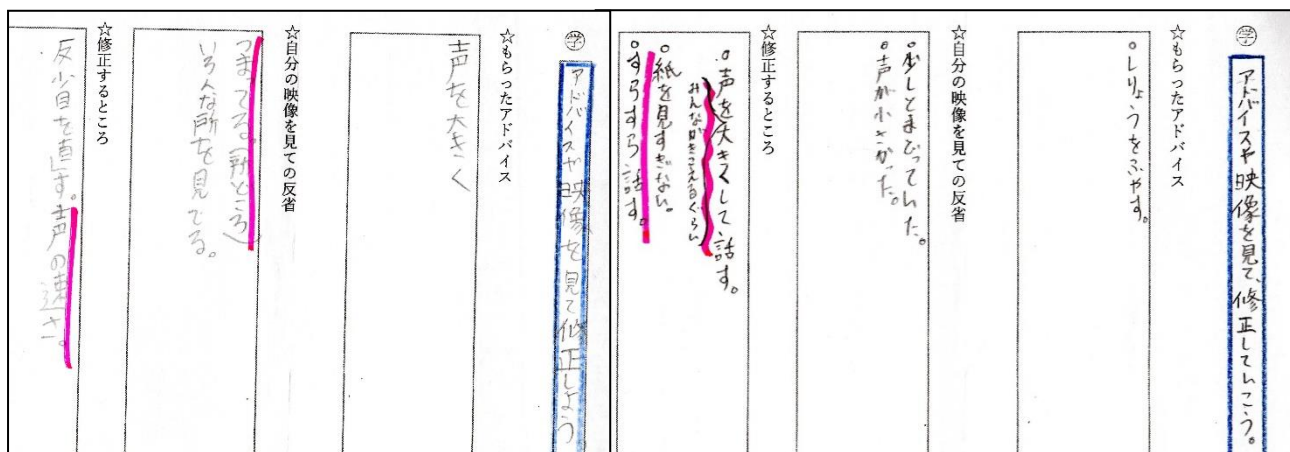 学
アドバイスや映像を見て、修正していこう。
☆もらったアドバイス
◦しりょうをふやす。
☆自分の映像を見ての反省
◦少しとまどっていた。
◦声が小さかった。
☆修正するところ
◦声を大きくして、話す。
みんながきこえるぐらい
◦紙を見すぎない。
◦すらすら話す。
学
アドバイスや映像を見て修正しよう
☆もらったアドバイス
声を大きく
☆自分の映像を見ての反省
つまってる。
いろんな所を見てる。
☆修正するところ
反少目を直す。声の速さ。